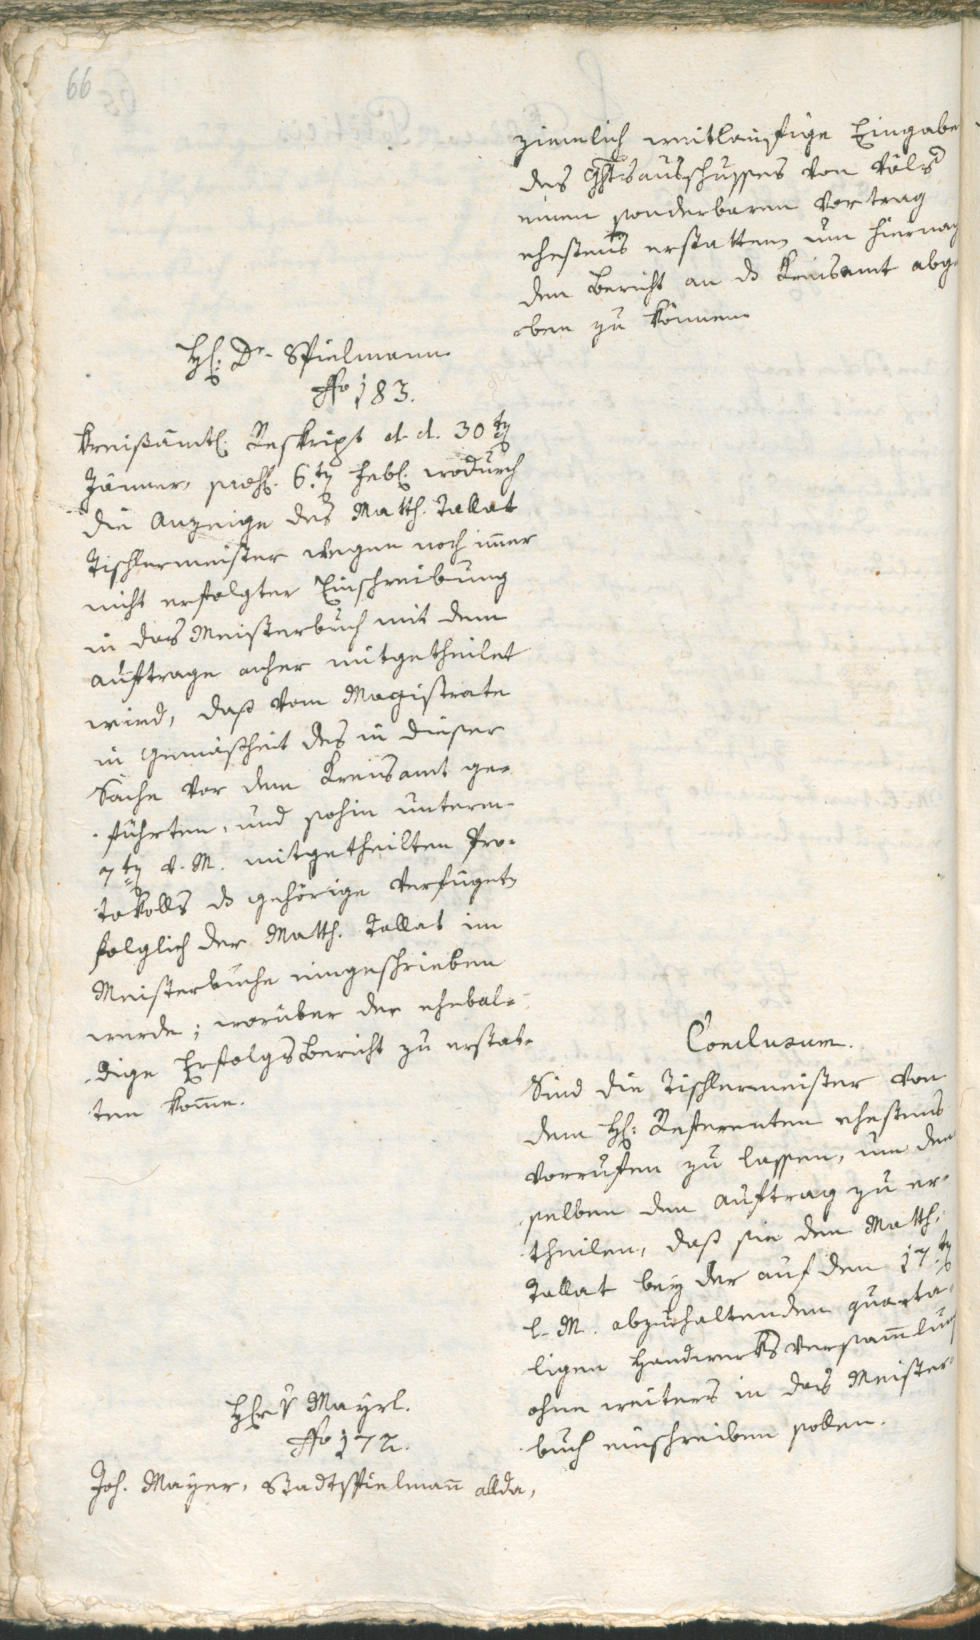 66
ziemlich weitläuffige Eingabe
des Ghtsausschusses von Völs
einen sonderbaren Vortrag
ehestens erstatten, um hiernach
den Bericht an das Kreisamt abge
ben zu können
H: Dr. Spielmann
No 183.
Kreisämtl. Reskript d. d. 30ten
Jänner, præs. 6ten Febr. wodurch
die Anzeige des Matth. Tallat
Tischlermeister wegen noch imer
nicht erfolgter Einschreibung
in das Meisterbuch mit dem
auftrage anher mitgetheilet
wird, daß vom Magistrate
in Gemäßheit des in dieser
Sache vor dem Kreisamt ge-
führten, und sohin unterm
7ten v. M. mitgetheilten Pro-
tokolls das gehörige verfüget,
folglich der Matth. Tallat im
Meisterbuche eingeschrieben
werde; worüber der ehebal-
dige Erfolgsbericht zu erstat-
ten kome.
Conclusum.
Sind die Tischlermeister von
dem H: Referenten ehestens
vorrufen zu lassen, um den
selben den Auftrag zu er-
theilen, daß sie den Matth.
Tallat bey der auf den 17ten
l. M. abzuhaltenden quarta-
ligen Handwerks versamlung
ohne weiters in das Meister-
buch einschreiben sollen.
Mayrl.
No 172.
Joh. Mayer, Stadtspielman allda,